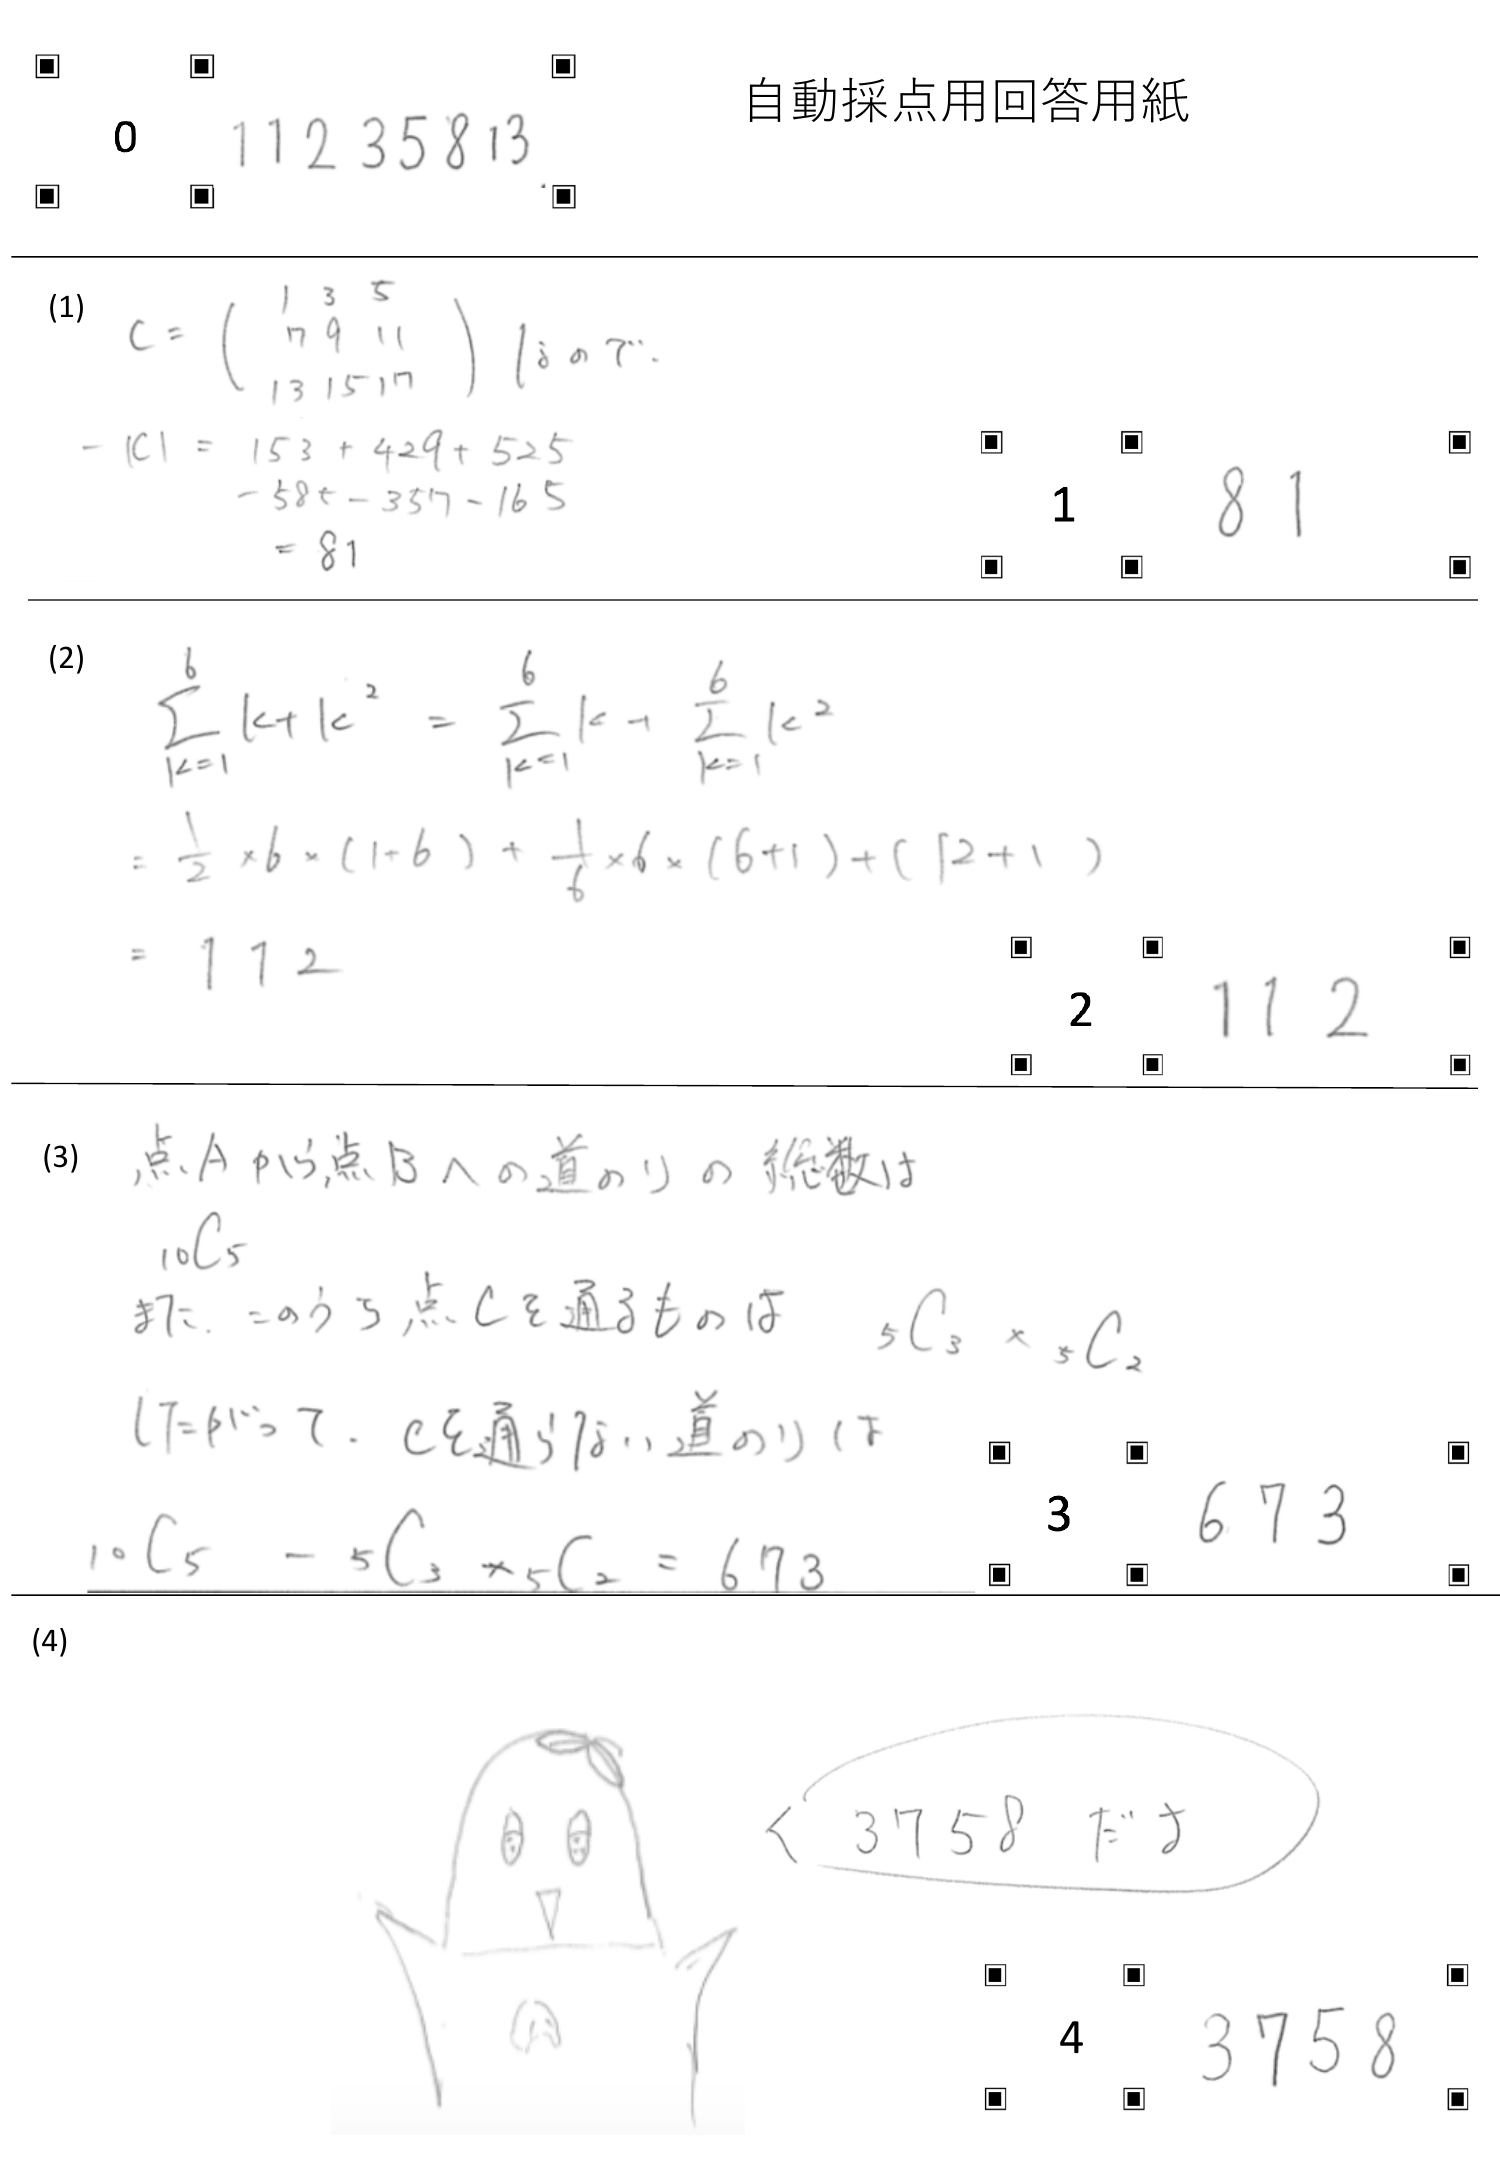 自動採点用回答用紙
0 11235813.
(1)
C = ( 1 3 5
7 9 11
13 15 17 ) なので.
- |C| = 153 + 429 + 525
- 585 - 357 - 165
= 81
1 81
(2)
6 6 6
Σ k+k² = Σ k + Σ k²
k=1 k=1 k=1
= 1/2 × 6 × (1+6) + 1/6 × 6 × (6+1) + (12+1)
= 112
2 112
(3) 点Aから点Bへの道のりの総数は
₁₀C₅
また、このうち点Cを通るものは ₅C₃ × ₅C₂
したがって. Cを通らない道のりは
₁₀C₅ - ₅C₃ × ₅C₂ = 673
3 673
(4)
3758 だよ
4 3758